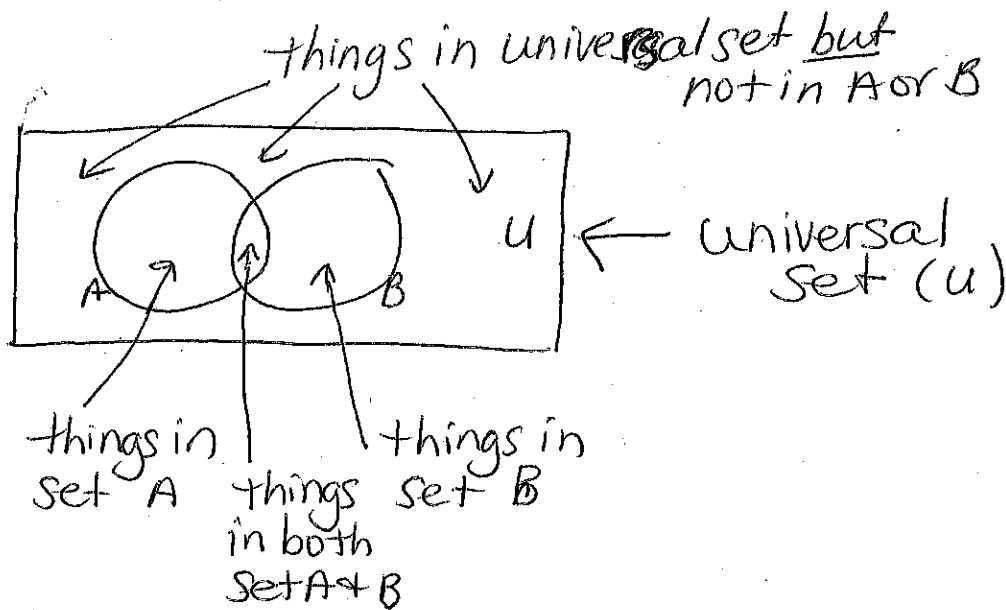 things in universal set but
not in A or B
U
universal
set (u)
A
B
things in
set A
things
in both
set A + B
things in
set B